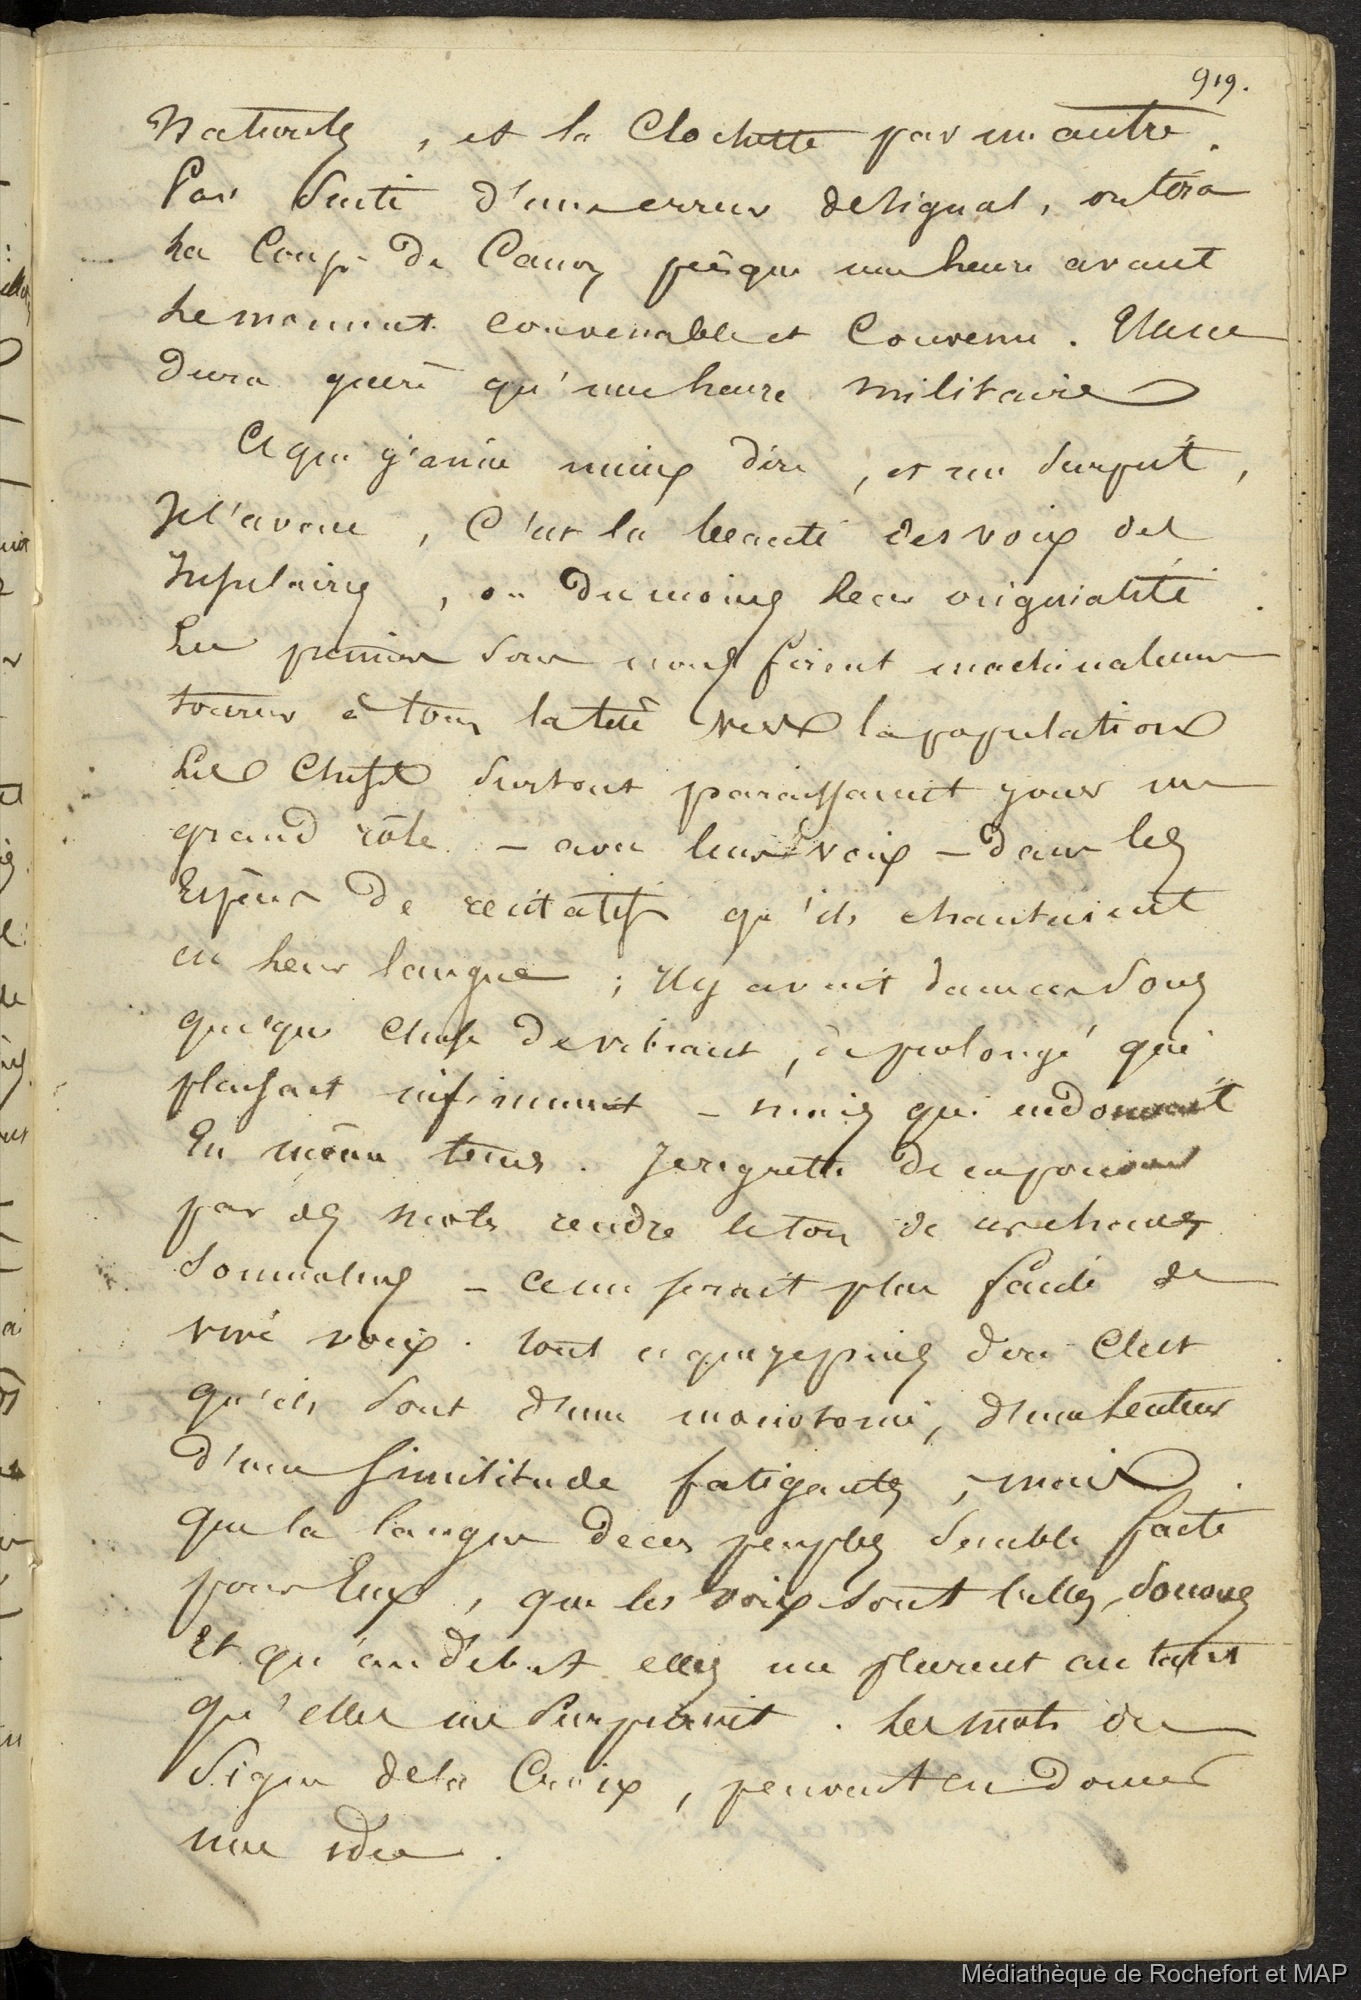 919.
naturels, et la Clochette par un autre.
Par suite d'une erreur de signal, on tira
Le Coup de Canon presque une heure avant
Le moment convenable et Convenu. Elle ne
dura guère qu'une heure militaire
Ce que j'aime mieux dire, et me surprit,
Je l'avoue, C'est la beauté des voix des
Insulaires, ou du moins leur originalité.
Les premiers sons nous firent machinalement
tourner à tous la tête vers la population
Les Chefs surtout paraissaient jouer un
grand rôle – avec leurs voix – dans les
Espèces de récitatifs qu'ils chantaient
en leur langue ; Il y avait dans ces sons
quelque chose de vibrant, de prolongé qui
plaisait infiniment – mais qui endormait
En même tems. Je regrette de ne pouvoir
par des mots rendre le ton de ces chants
– ce me serait plus facile de
vive voix. tout ce que je puis dire C'est
qu'ils sont d'une monotonie, d'une lenteur
d'une similitude fatigantes, mais
que la langue de ces peuples semble faite
pour Eux, que les voix sont belles, sonores
Et qu'au début elles me plurent autant
qu'elles me surprirent. Les mots du
Signe de la Croix, peuvent en donner
une idée.
Médiathèque de Rochefort et MAP